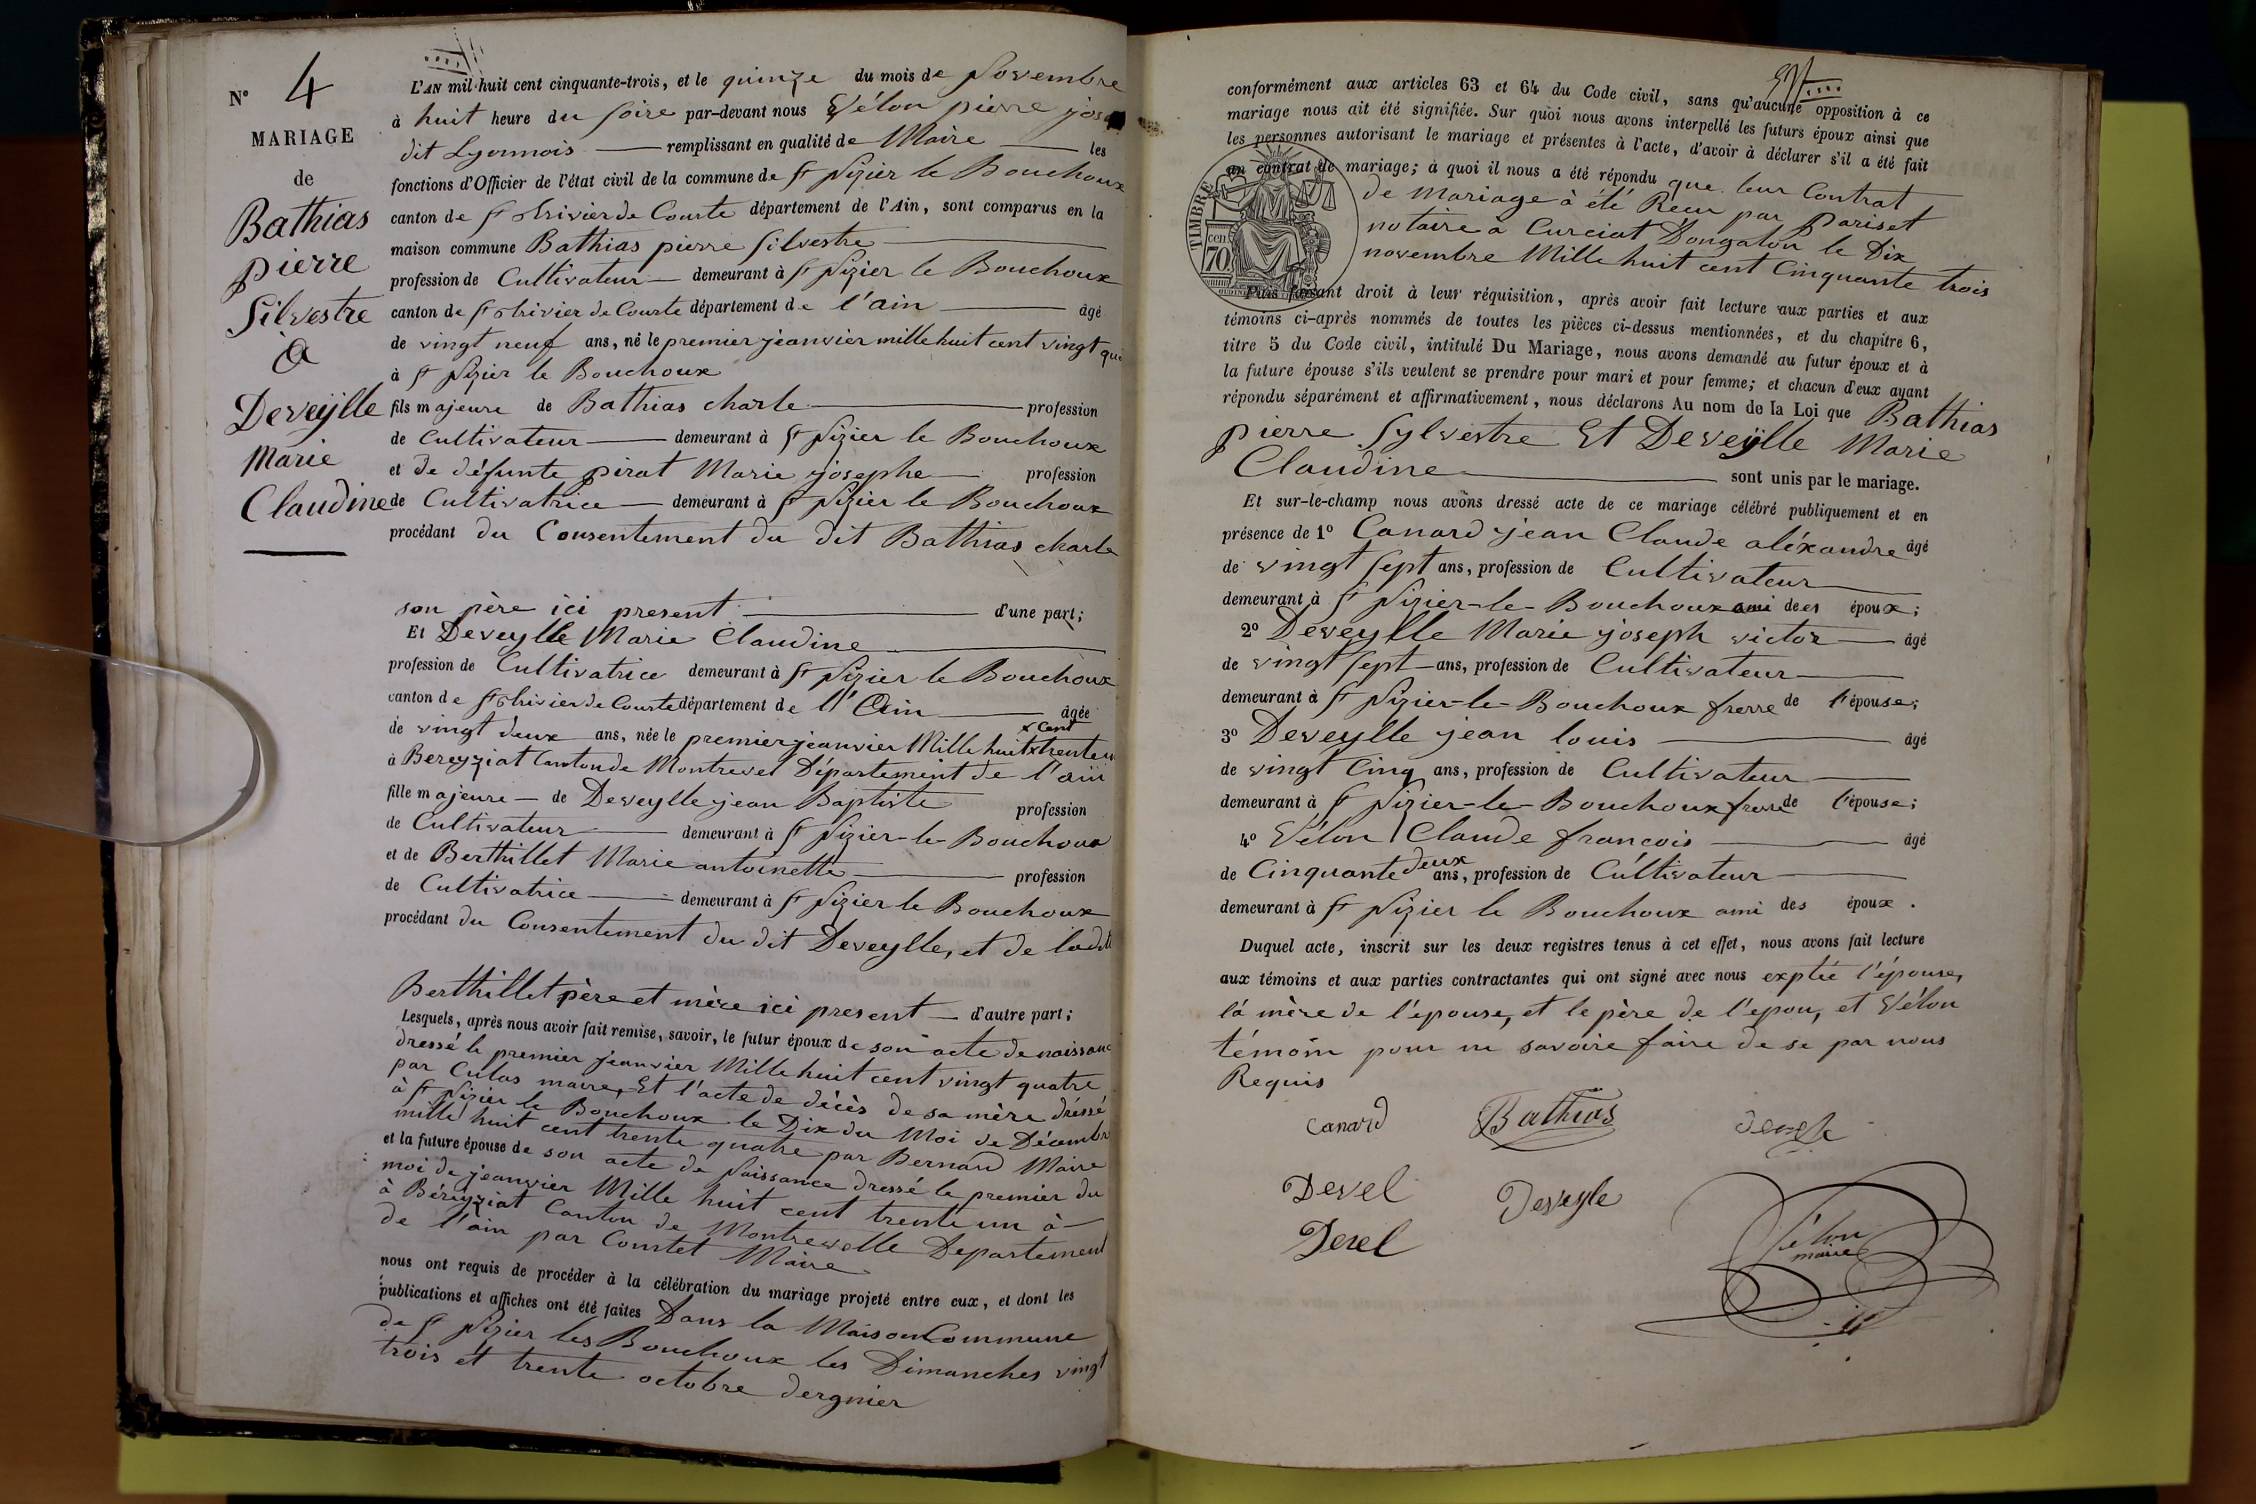 N° 4
MARIAGE
de
Bathias
pierre
Silvestre
à
Deveylle
Marie
Claudine
L'AN mil huit cent cinquante-trois, et le quinze du mois de Novembre
à huit heure du soire par-devant nous Vélon pierre
dit Lyonnois remplissant en qualité de Maire les
fonctions d'Officier de l'état civil de la commune de St Nizier le Bouchoux
canton de St trivier de Courte département de l'Ain, sont comparus en la
maison commune Bathias pierre Silvestre
profession de Cultivateur demeurant à St Nizier le Bouchoux
canton de St trivier de Courte département de l'ain âgé
de vingt neuf ans, né le premier jeanvier mille huit cent vingt
à St Nizier le Bouchoux
fils majeure de Bathias charle profession
de Cultivateur demeurant à St Nizier le Bouchoux
et de défunte pirat Marie josephe profession
de Cultivatrice demeurant à St Nizier le Bouchoux
procédant du Consentement du dit Bathias charle
son père ici present d'une part;
Et Deveylle Marie Claudine
profession de Cultivatrice demeurant à St Nizier le Bouchoux
canton de St trivier de Courte département de l'Ain âgée
de vingt deux ans, née le premier jeanvier Mille huit x cent trente un
à Bereyziat Canton de Montrevel Département de l'ain
fille majeure de Deveylle jean Baptiste profession
de Cultivateur demeurant à St Nizier-le-Bouchoux
et de Berthillet Marie antoinette profession
de Cultivatrice demeurant à St Nizier le Bouchoux
procédant du Consentement du dit Deveylle, et de ladite
Berthillet père et mère ici present d'autre part;
Lesquels, après nous avoir fait remise, savoir, le futur époux de son acte de naissance
dressé le premier jeanvier Mille huit cent vingt quatre
par Culas maire, Et l'acte de décès de sa mère dréssé
à St Nizier le Bouchoux le Dix du Moi de Décembre
mille huit cent trente quatre par Bernard Maire
et la future épouse de son acte de Naissance dressé le premier du
moi de jeanvier Mille huit cent trente un à
à Béreyziat Canton de Montrevelle Departement
de l'ain par Comtet Maire
nous ont requis de procéder à la célébration du mariage projeté entre eux, et dont les
publications et affiches ont été faites Dans la Maison Commune
de St Nizier les Bouchoux les Dimanches vingt
trois et trente octobre dergnier
conformément aux articles 63 et 64 du Code civil, sans qu'aucune opposition à ce
mariage nous ait été signifiée. Sur quoi nous avons interpellé les futurs époux ainsi que
les personnes autorisant le mariage et présentes à l'acte, d'avoir à déclarer s'il a été fait
un contrat de mariage; à quoi il nous a été répondu que leur Contrat
de Mariage à été Recu par Pariset
notaire à Curciat Dongalon le Dix
novembre Mille huit cent Cinquante trois
TIMBRE
cen.
70.
Puis faisant droit à leur réquisition, après avoir fait lecture aux parties et aux
témoins ci-après nommés de toutes les pièces ci-dessus mentionnées, et du chapitre 6,
titre 5 du Code civil, intitulé Du Mariage, nous avons demandé au futur époux et à
la future épouse s'ils veulent se prendre pour mari et pour femme; et chacun d'eux ayant
répondu séparément et affirmativement, nous déclarons Au nom de la Loi que Bathias
pierre Sylvestre Et Deveylle Marie
Claudine sont unis par le mariage.
Et sur-le-champ nous avons dressé acte de ce mariage célébré publiquement et en
présence de 1° Canard jean Claude aléxandre âgé
de vingt sept ans, profession de Cultivateur
demeurant à St Nizier-le-Bouchoux ami des époux;
2° Deveylle Marie joseph victor âgé
de vingt sept ans, profession de Cultivateur
demeurant à St Nizier-le-Bouchoux frerre de l'épouse;
3° Deveylle jean louis âgé
de vingt Cinq ans, profession de Cultivateur
demeurant à St Nizier-le-Bouchoux frerre de l'épouse;
4° Vélon Claude francois âgé
de Cinquante deux ans, profession de Cultivateur
demeurant à St Nizier le Bouchoux ami des époux.
Duquel acte, inscrit sur les deux registres tenus à cet effet, nous avons fait lecture
aux témoins et aux parties contractantes qui ont signé avec nous exptée l'épouse,
la mère de l'épouse, et le père de l'epou, et Vélon
témoin pour ne savoire faire de se par nous
Requis
Canard Bathias
Devel Deveyle
Devel
Vélon
maire